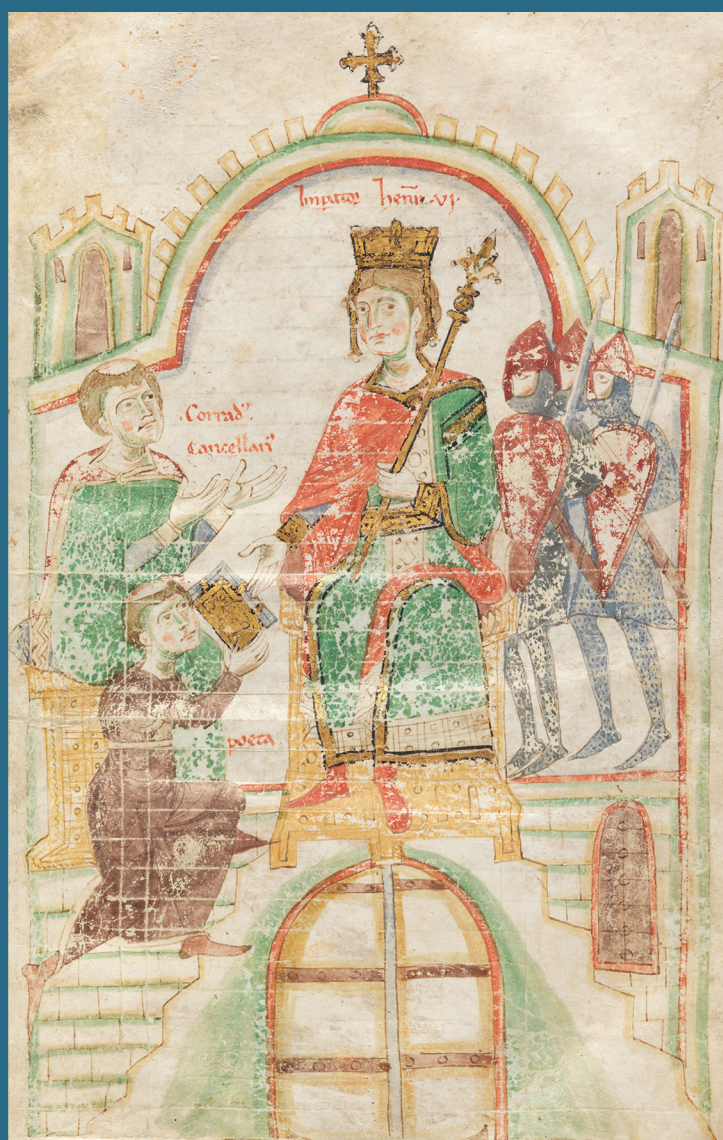 Imꝑator henr̄ .VI.
.Corradꝰ.
Cancellariꝰ
poeta